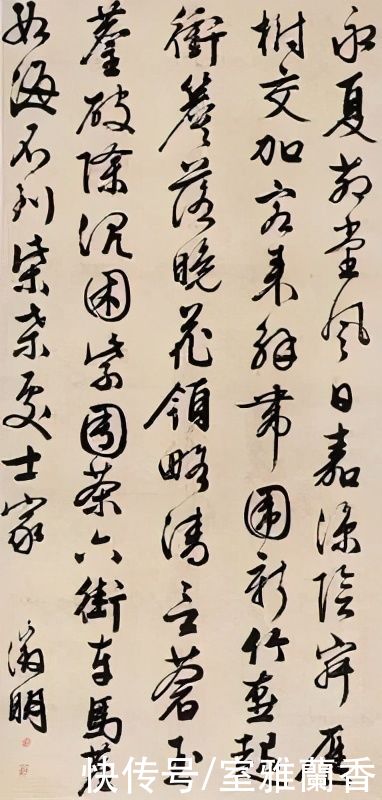 永夏茆堂風日嘉涼陰寂歷
樹交加客来解帶圍新竹燕起
衝簾落晚花領略清言蒼玉
麈破除沉困紫團茶六街車馬塵
如海不到柴桑處士家
徵明
快传号/室雅蘭香